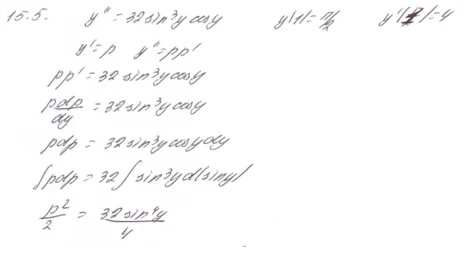 15.5. y'' = 32 sin³y cosy y(1) = π/2 y'(1) = 4
y' = p y'' = pp'
pp' = 32 sin³y cosy
p dp/dy = 32 sin³y cosy
pdp = 32 sin³y cosy dy
∫pdp = 32 ∫ sin³y d(siny)
p²/2 = 32 sin⁴y/4